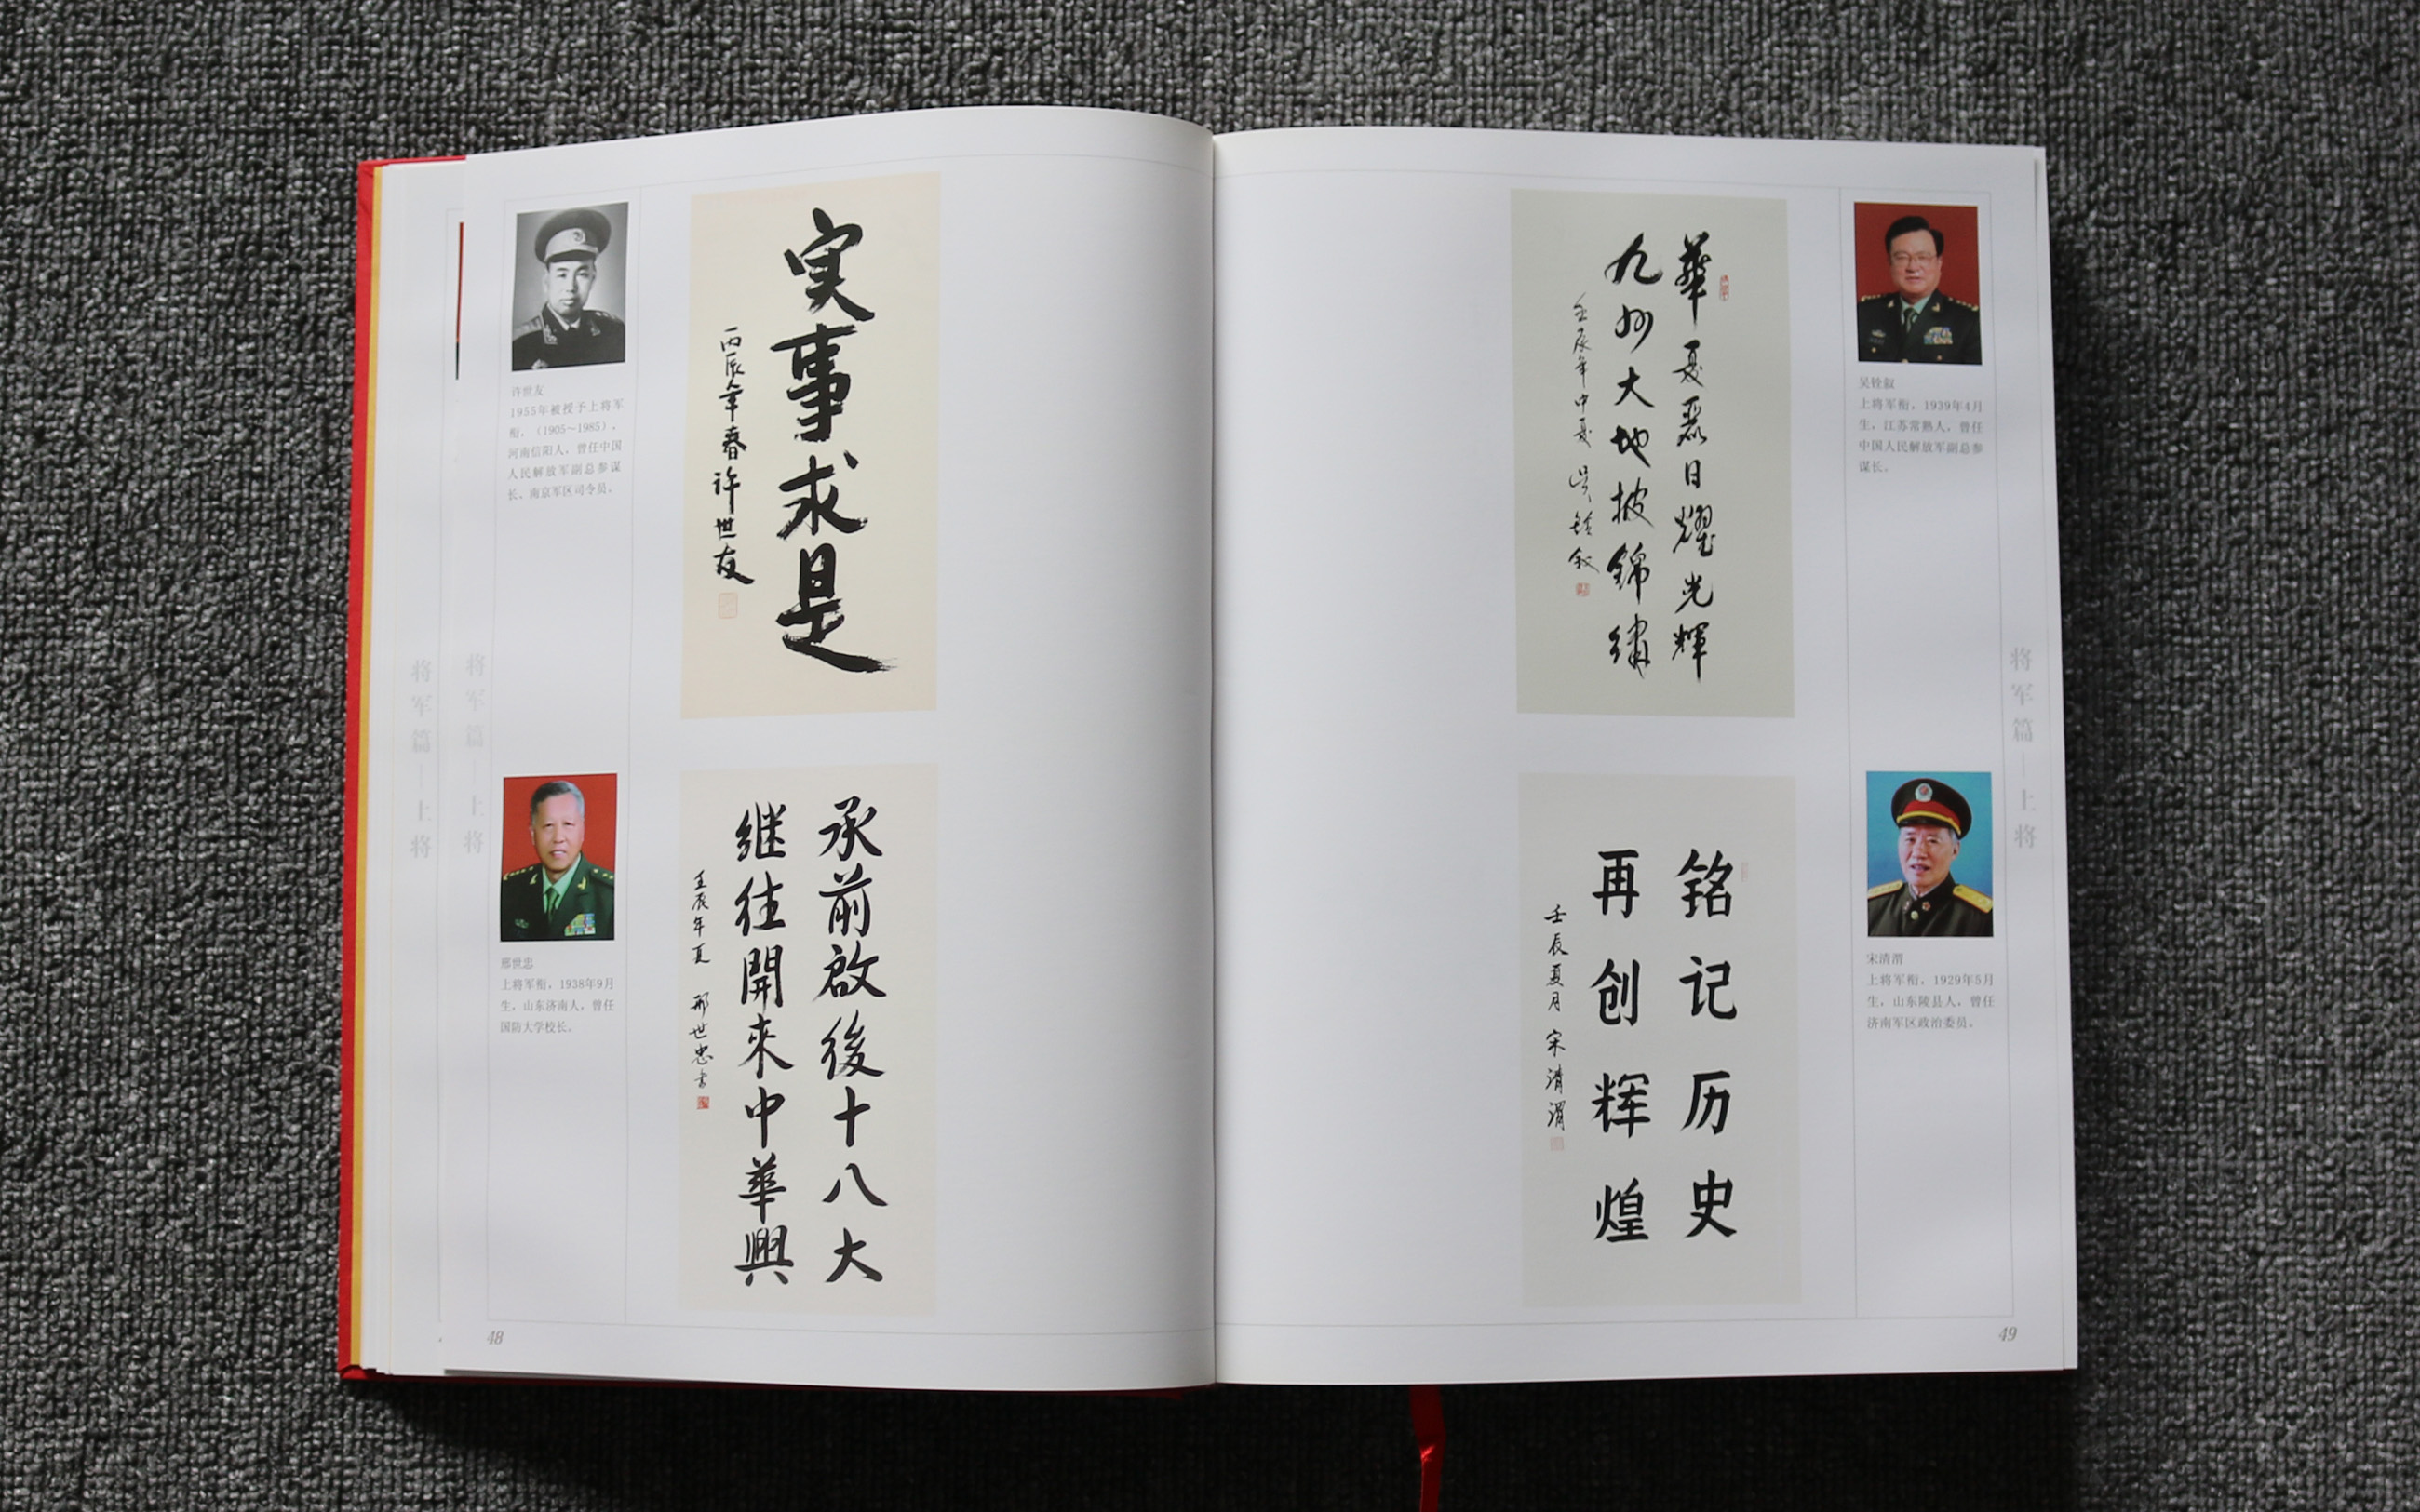 许世友
1955年被授予上将军
衔，（1905～1985），
河南信阳人，曾任中国
人民解放军副总参谋
长、南京军区司令员。
实事求是
丙辰年春许世友
邢世忠
上将军衔，1938年9月
生，山东济南人，曾任
国防大学校长。
承前啟後十八大
继往開來中華興
壬辰年夏 邢世忠书
将军篇—上将
将军篇—上将
48
華夏磊日耀光輝
九州大地披錦繡
壬辰年中夏 吴铨叙
吴铨叙
上将军衔，1939年4月
生，江苏常熟人，曾任
中国人民解放军副总参
谋长。
铭记历史
再创辉煌
壬辰夏月 宋清渭
宋清渭
上将军衔，1929年5月
生，山东陵县人，曾任
济南军区政治委员。
将军篇—上将
49